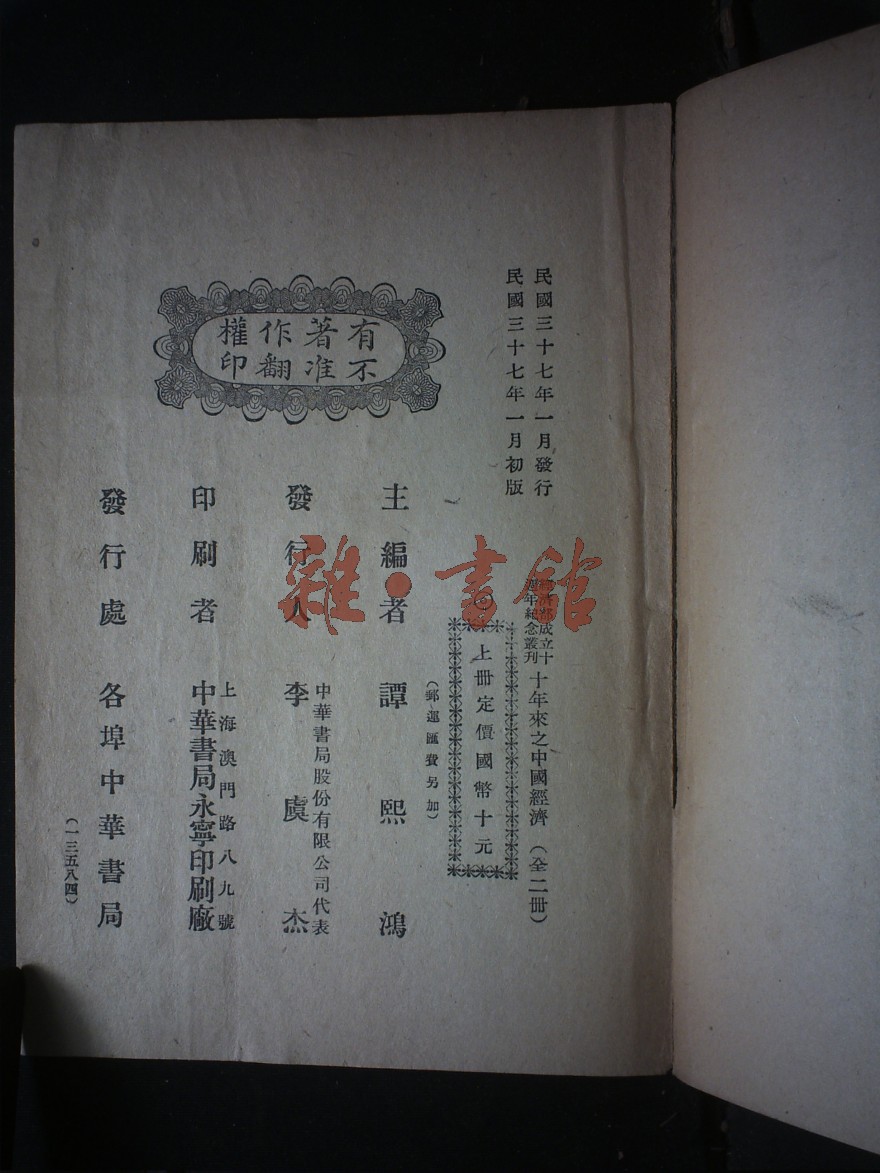 民國三十七年一月發行
民國三十七年一月初版
經濟部成立十
週年紀念叢刊
十年來之中國經濟（全二冊）
上冊定價國幣十元
（郵運匯費另加）
有著作權
不准翻印
主編者 譚熙鴻
發行人 李虞杰
中華書局股份有限公司代表
印刷者 中華書局永寧印刷廠
上海澳門路八九號
發行處 各埠中華書局
（一三五八四）
雜·書館